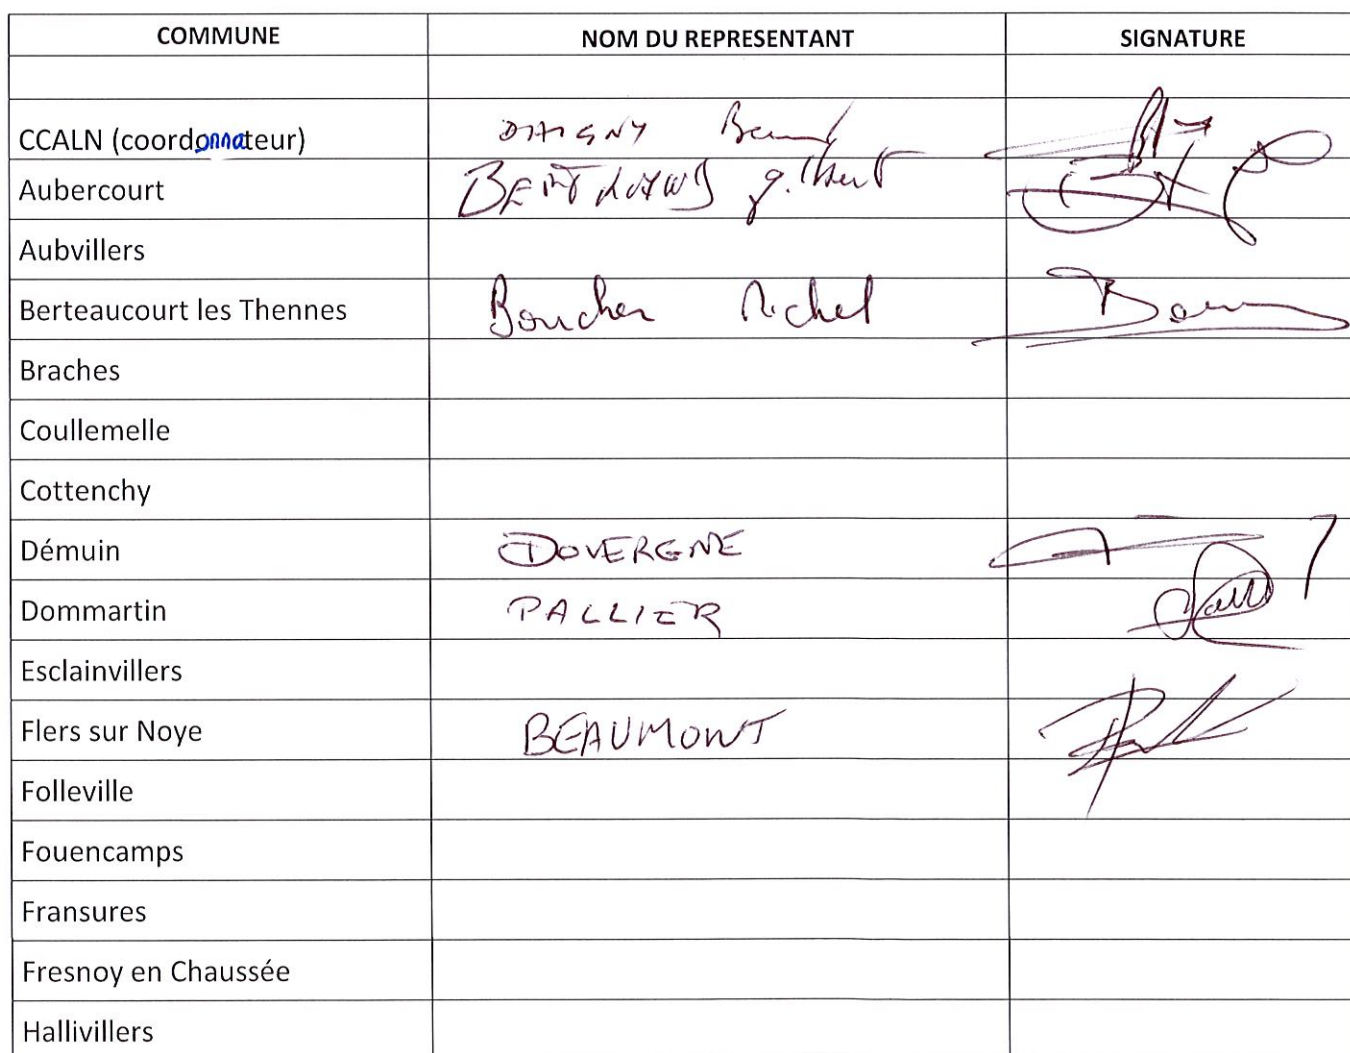 COMMUNE NOM DU REPRESENTANT SIGNATURE
CCALN (coordonnateur) DAIGNY
Aubercourt
Aubvillers
Berteaucourt les Thennes Boucher Michel
Braches
Coullemelle
Cottenchy
Démuin DOVERGNE
Dommartin PALLIER
Esclainvillers
Flers sur Noye BEAUMONT
Folleville
Fouencamps
Fransures
Fresnoy en Chaussée
Hallivillers